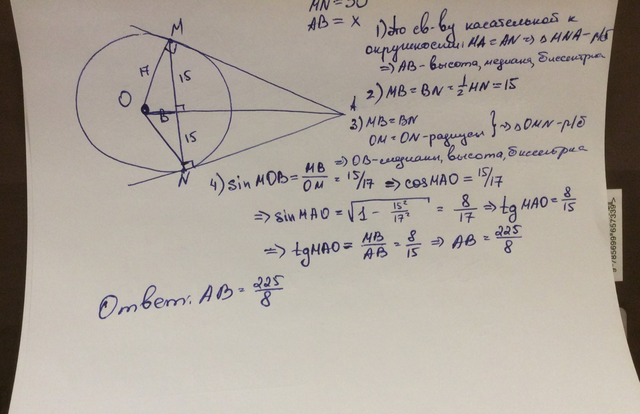 MN = 30
AB = x
1) По св-ву касательной к
окружности: MA = AN => △MNA - р/б
=> AB - высота, медиана, биссектриса
2) MB = BN = 1/2 MN = 15
3) MB = BN
OM = ON - радиусы } => △OMN - р/б
=> OB - медиана, высота, биссектриса
4) sin MOB = MB/OM = 15/17 => cos MAO = 15/17
=> sin MAO = √(1 - 15²/17²) = 8/17 => tg MAO = 8/15
=> tg MAO = MB/AB = 8/15 => AB = 225/8
Ответ: AB = 225/8
M
17
15
O
B
A
15
N